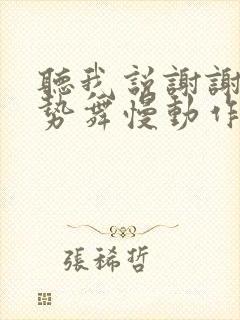 聽我説謝謝
势舞慢動作
張稀哲